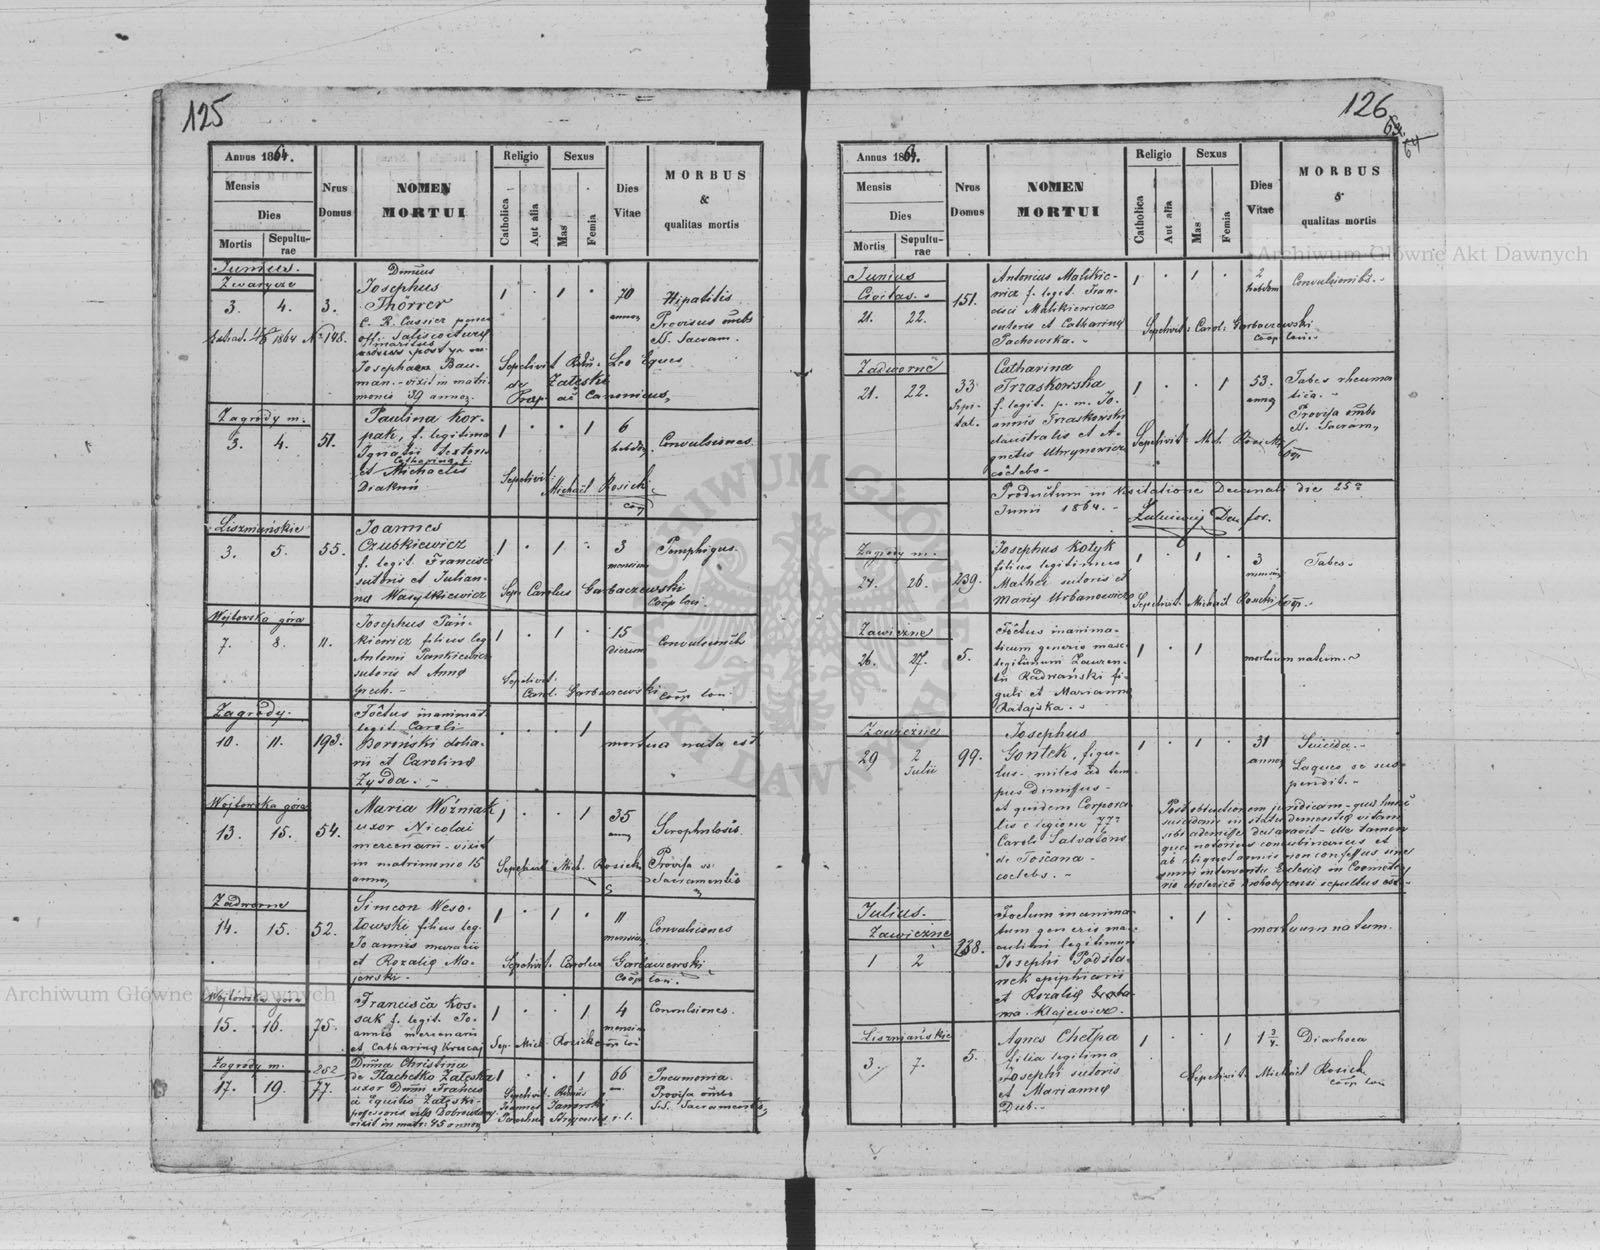 125
Annus 1864.
Mensis
Dies
Mortis
Sepulturae
Nrus Domus
NOMEN MORTUI
Religio
Catholica
Aut alia
Sexus
Mas
Femia
Dies Vitae
MORBUS & qualitas mortis
Junius.
Zwarycze
3. 4. 3.
Josephus
Thörrer
C. R. Cassier penes
Josephaea Bau-
man. - vixit in matri-
monio 39 annos
1 . 1 . 70
annos
Hipatitis
Provisus
S. Sacram.
Sepelivit
Leo Eques
de Zaleski
Praep. ac Canonicus,
Zagrody m.
3. 4. 51.
Paulina Kor-
pak, f. legitima
Ignatii textoris
et Michaelis
Diakun
1 . . 1 6
hebdom.
Convulsiones.
Sepelivit
Michaël Rosicki
Coop
Liszniańskie
3. 5. 55.
Joannes
Czubkiewicz
f. legit. Francisci
sutoris et Julian-
na Wasylkiewicz
1 . 1 . 3
mensium
Pemphigus.
Sepe. Carolus Garbaczewski
Coop loci.
Wojtowska góra
7. 8. 11.
Josephus Pań-
kiewicz filius leg.
Antonii Pankiewicz
sutoris et Anna
Gruch. -
1 . 1 . 15
dierum
Convulsionib
Sepelivit
Carol. Garbaczewski
Coop loci.
Zagrody.
10. 11. 193.
Foetus inanimat
legit. Caroli
Boroński dolia-
rii et Carolina
Zyzda. -
. . . 1
mortua nata est
Wojtowska góra
13. 15. 54.
Maria Woźniak
uxor Nicolai
mercenarii - vixit
in matrimonio 16
annos
1 . . 1 35
Scrophulosis.
Provisa
Sacramentis
Sepelivit Mich. Rosicki
Zadworne
14. 15. 52.
Simeon Weso-
łowski filius leg.
Joannis murarii
et Rozalia Ma-
jewski.
1 . 1 . 11
mensium
Convulsiones
Sepelivit. Carolus Garbaczewski
Coop loci.
Wojtowska góra
15. 16. 75.
Francisca Kos-
sak f. legit. Jo-
annis mercenarii
et Catharina Krucaj
1 . . 1 4
mensium
Convulsiones.
Sep. Mich. Rosicki
Zagrody m.
252
17. 19. 77.
Christina
de Zaleska
uxor Francis-
ci Equitis Zaleski -
vixit in matr. 45 annos
1 . . 1 66
Pneumonia.
Provisa
S.S. Sacramentis,
Sepelivit
Joannes Janowski
Parochus
126
Annus 1864.
Mensis
Dies
Mortis
Sepulturae
Nrus Domus
NOMEN MORTUI
Religio
Catholica
Aut alia
Sexus
Mas
Femia
Dies Vitae
MORBUS & qualitas mortis
Junius
Civitas.
21. 22. 151.
Antonius Malikie-
wicz f. legit. Fran-
cisci Malikiewicz
sutoris et Catharina
Pachowska. -
1 . 1 . 2
hebdom
Convulsionibs. -
Sepelivit: Carol: Garbaczewski
Coop loci.
Zadworne
21. 22. 33
Catharina
Trzaskowska
f. legit. p. m. Jo-
annis Trzaskowski
claustralis et A-
gnetis Uhrynowicz
coelebs -
1 . . 1 53.
annos
Tabes rheuma-
tica. -
Provisa
S. Sacram,
Sepelivit: Mich. Rosicki
Coop
Productum in Visitatione Decanali die 25ta
Junii 1864. -
Zagrody m.
24. 26. 239.
Josephus Kotyk
filius legitimus
Mathei sutoris et
Maria Urbanowicz
1 . 1 . 3
Tabes. -
Sepelivit. Michaël Rosicki Coop.
Zawiczne
26. 27. 5.
Foetus inanima-
ticum generis masc.
legitimum Lauren-
tii Radwański fi-
guli et Marianna
Ratajska. -
1 . 1 .
mortuum natum. -
Zawiczne
29 2
Julii
99.
Josephus
Gontek, figu-
lus - miles ad tem-
pus dimissus -
et quidem Corpora-
lis e legione 77ma
Caroli Salvatoris
de Toscana -
coelebs. -
1 . 1 . 31
annos
Suicida. -
Laqueo se sus-
pendit. -
Post obductionem juridicam -
suicidam in statu dementiae vitam
sibi ademisse declaravit - tamen
qua notorius concubinarius et
ab aliquot annis non confessus sine
omni interventu Ecclesiae in Coemete-
rio cholerico Drohobycensi sepultus est. -
Julius.
Zawiczne
1 2 238.
Foetum inanima-
tum generis ma-
sculini legitimum
Josephi Podsta-
wek epiphicarii
et Rozalia
Klajewicz. -
. 1 .
mortuum natum.
Liszniańskie
3. 7. 5.
Agnes Chełpa
filia legitima
Josephi sutoris
et Marianna
Dub. -
1 . . 1 1 3/4.
Diarhoea
Sepelivit. Michaël Rosicki
Coop loci
Archiwum Główne Akt Dawnych
Archiwum Główne Akt Dawnych
ARCHIWUM GŁÓWNE AKT DAWNYCH